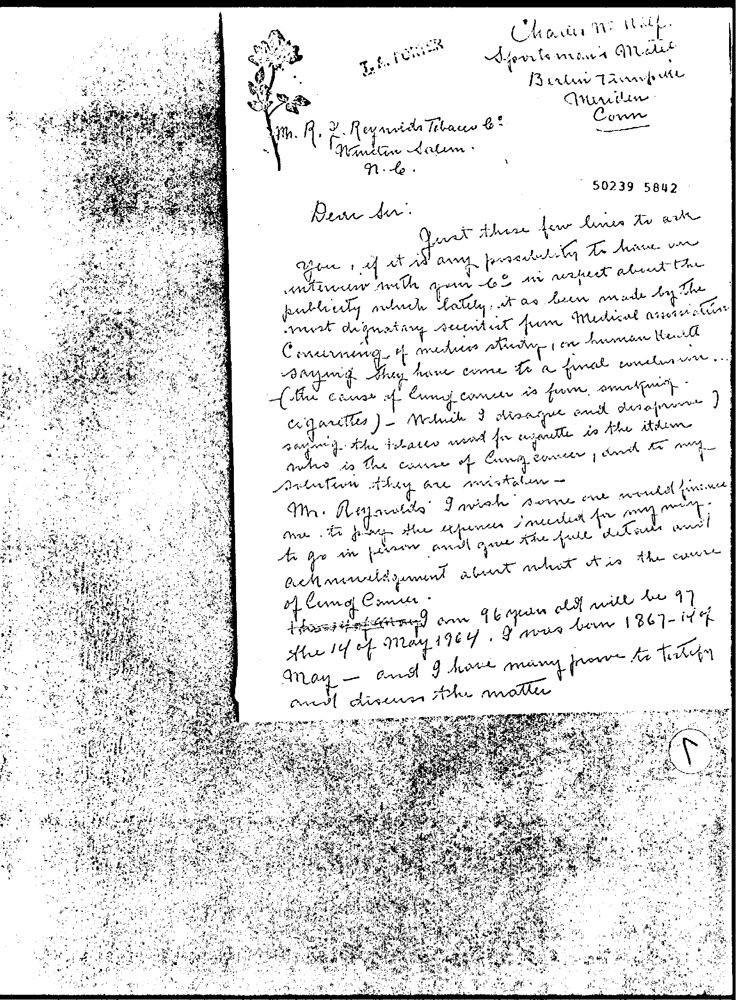 Charles N. Wolf.
Sportsman's Motel
Berlin Turnpike
Meriden
Conn
J. A. PORTER
Mr. R. J. Reynolds Tobacco Co
Winston Salem.
N. C.
50239 5842
Dear Sir:
Just these few lines to ask
you, if it is any possibility to have an
interview with your Co in respect about the
publicity which lately, it as been made by the
most dignatary scientist from Medical association
Concerning of medics study, on human Health
saying they have come to a final conclusion...
(the cause of lung cancer is from smoking
cigarettes) - Which I disagree and disaprove
saying the tobacco used for cigarette is the itdem
who is the cause of lung cancer, and to my
solution they are mistaken -
Mr. Reynolds I wish some one would finance
me to pay the expences ineeded for my
to go in person and give the full details and
acknowledgement about what it is the cause
of lung Cancer.
I am 96 years old will be 97
the 14 of May 1964. I was born 1867-14 of
May - and I have many prove to testify
and discuss the matter
7